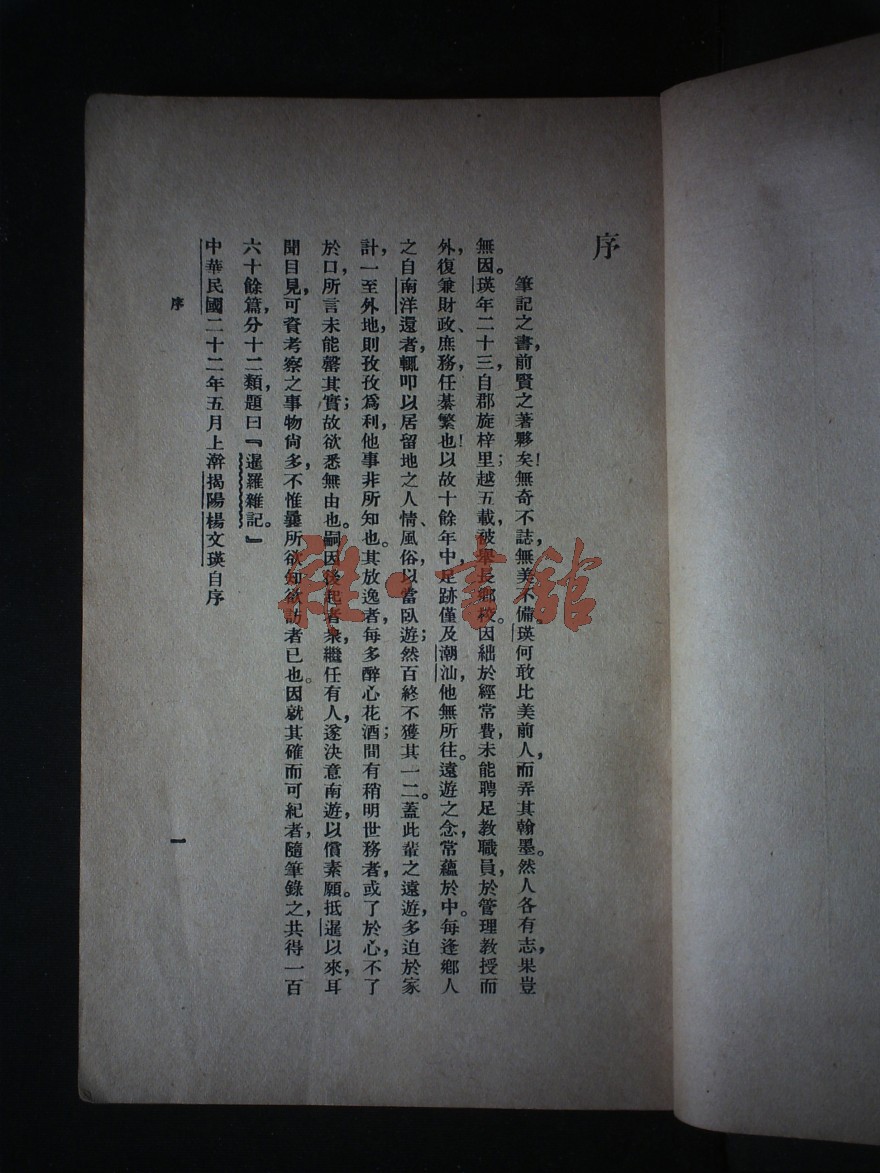 序
筆記之書，前賢之著夥矣！無奇不誌，無美不備。瑛何敢比美前人，而弄其翰墨。然人各有志，果豈
無因。瑛年二十三，自郡旋梓里；越五載，被舉長鄉校。因絀於經常費，未能聘足教職員，於管理教授而
外，復兼財政、庶務，任綦繁也！以故十餘年中，足跡僅及潮汕，他無所往。遠遊之念，常蘊於中。每逢鄉人
之自南洋還者，輒叩以居留地之人情、風俗，以當臥遊；然百終不獲其一二。蓋此輩之遠遊，多迫於家
計，一至外地，則孜孜爲利，他事非所知也。其放逸者，每多醉心花酒；間有稍明世務者，或了於心，不了
於口，所言未能罄其實；故欲悉無由也。嗣因後起者衆，繼任有人，遂決意南遊，以償素願。抵暹以來，耳
聞目見，可資考察之事物尙多，不惟曩所欲知欲訪者已也。因就其確而可紀者，隨筆錄之，共得一百
六十餘篇，分十二類，題曰『暹羅雜記。』
中華民國二十二年五月上澣揭陽楊文瑛自序
序
一
雜·書館